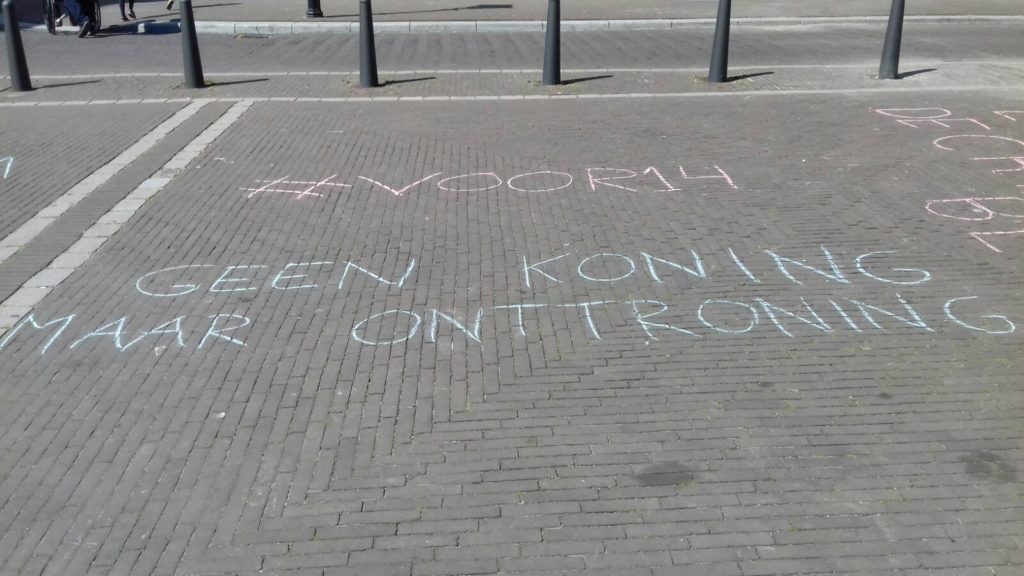 #VOOR14
GEEN KONING
MAAR ONTTRONING